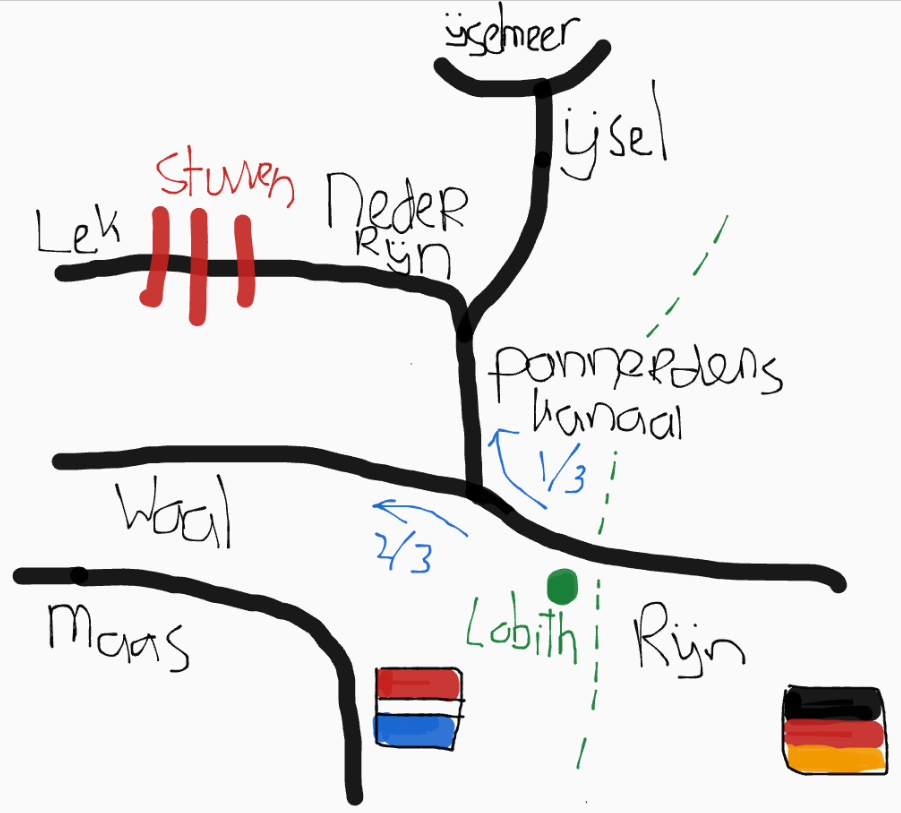 ijselmeer
ijsel
Stuwen
Neder
Rijn
Lek
Pannerdens
kanaal
1/3
Waal
2/3
Maas
Lobith
Rijn